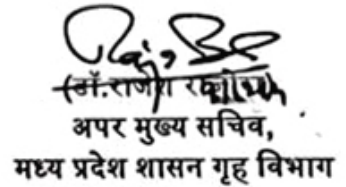 (डॉ.राजेश
अपर मुख्य सचिव,
मध्य प्रदेश शासन गृह विभाग